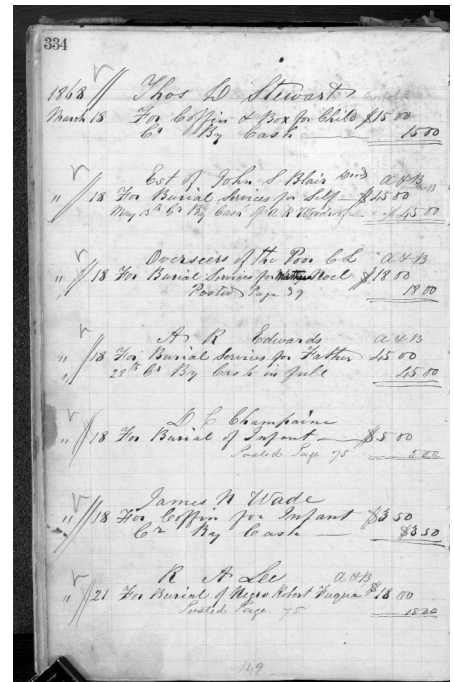 334
1868 Thos D Stewart
March 18 For Coffin & Box for Child $15 00
Cr By Cash 15 00
Est of John S Blair Decd A & B
" 18 For Burial Services for Self $45 00
May 13th Cr By Cash of A R Woodroof 45 00
Overseers of the Poor C L A & B
" 18 For Burial Services for Noel $18 00
Posted Page 39 18 00
A R Edwards A & B
" 18 For Burial Services for Father 45 00
" 28th Cr By Cash in full 45 00
D C Champaine
" 18 For Burial of Infant $5 00
Posted Page 75 5 00
James N Wade
" 18 For Coffin for Infant $3 50
Cr By Cash $3 50
R A Lee A & B
" 21 For Buriale of Negro Robert Fuqua $18 00
Posted Page 75 18 00
149